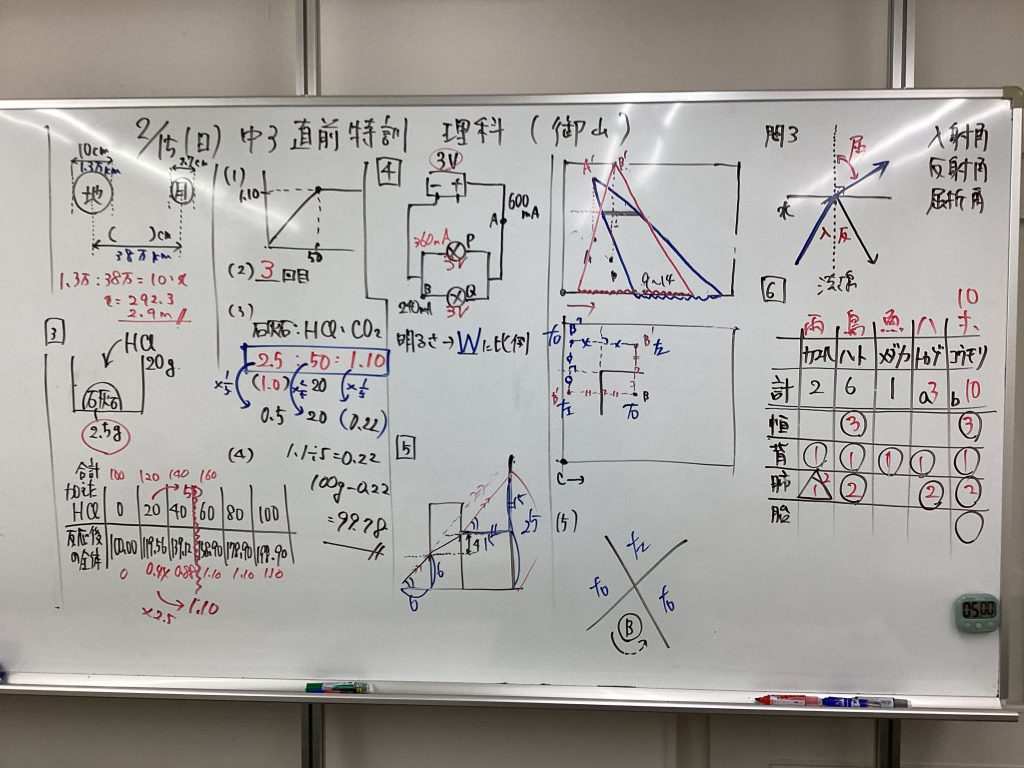 2/15(日) 中3 直前特訓 理科 (御山)
10cm
1.3万km
2.7cm
地
月
( )cm
38万km
1.3万:38万=10:x
x=292.3
2.9m
3
HCl
120g
石灰石
2.5g
合計 100 120 140 160
加えた HCl 0 20 40 60 80 100
50
反応後の全体 100.00 119.56 139.12 158.90 178.90 198.90
0 0.44 0.88 1.10 1.10 1.10
×2.5
1.10
(1)
1.10
50
(2) 3 回目
(3)
石灰石:HCl:CO2
2.5 : 50 : 1.10
(1.0) 20
0.5 20 (0.22)
(4) 1.1÷5=0.22
100g-0.22
=99.78
4
3V
600mA
A
360mA
P
3V
B
Q
240mA
3V
明るさ→Wに比例
5
15
25
15
14
6
6
A' B'
9~14
B" B'
た
B' B
た
C
(5)
た
た
た
B
問3
屈
水
入 反
入射角
反射角
屈折角
6
10
両 鳥 魚 ハ ホ
カエル ハト メダカ トカゲ コウモリ
計 2 6 1 a3 b10
恒 3 3
背 1 1 1 1 1
肺 1 2 2 2 2
胎
05:00